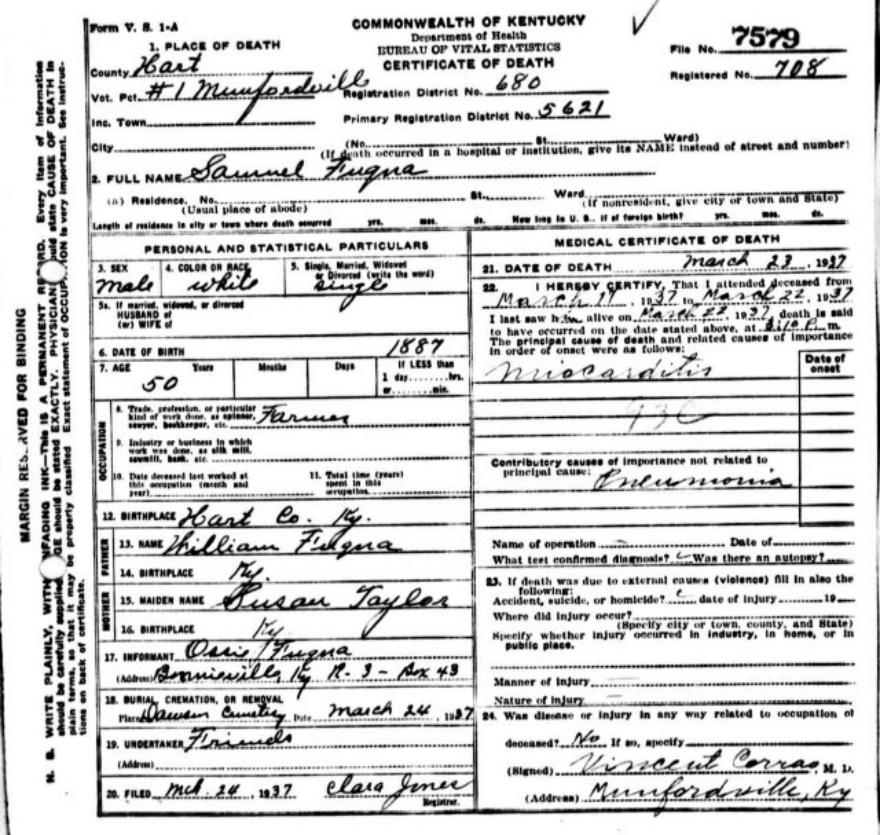 Form V. S. 1-A
COMMONWEALTH OF KENTUCKY
Department of Health
BUREAU OF VITAL STATISTICS
CERTIFICATE OF DEATH
File No. 7579
Registered No. 708
1. PLACE OF DEATH
County Hart
Vot. Pct. #1 Munfordville Registration District No. 680
Inc. Town Primary Registration District No. 5621
City (No. St. Ward)
(If death occurred in a hospital or institution, give its NAME instead of street and number)
2. FULL NAME Samuel Fuqua
(a) Residence. No. St. Ward
(Usual place of abode) (If nonresident, give city or town and State)
Length of residence in city or town where death occurred yrs. mos. ds. How long in U. S., if of foreign birth? yrs. mos. ds.
PERSONAL AND STATISTICAL PARTICULARS
3. SEX 4. COLOR OR RACE 5. Single, Married, Widowed
or Divorced (write the word)
male white single
5a. If married, widowed, or divorced
HUSBAND of
(or) WIFE of
6. DATE OF BIRTH 1887
7. AGE Years Months Days If LESS than
1 day, hrs.
or min.
50
OCCUPATION
8. Trade, profession, or particular
kind of work done, as spinner,
sawyer, bookkeeper, etc. Farmer
9. Industry or business in which
work was done, as silk mill,
sawmill, bank, etc.
10. Date deceased last worked at
this occupation (month and
year)
11. Total time (years)
spent in this
occupation
12. BIRTHPLACE Hart Co. Ky.
FATHER
13. NAME William Fuqua
14. BIRTHPLACE Ky.
MOTHER
15. MAIDEN NAME Susan Taylor
16. BIRTHPLACE Ky
17. INFORMANT Ossie Fuqua
(Address) Bonnieville, Ky R-3-Box 43
18. BURIAL, CREMATION, OR REMOVAL
Place Dawson Cemetery Date March 24, 1937
19. UNDERTAKER Friends
(Address)
20. FILED Mch. 24, 1937 Clara Jones
Registrar.
MEDICAL CERTIFICATE OF DEATH
21. DATE OF DEATH March 23, 1937
22. I HEREBY CERTIFY, That I attended deceased from
March 19, 1937 to March 22, 1937
I last saw him alive on March 22, 1937, death is said
to have occurred on the date stated above, at 3:10 P. m.
The principal cause of death and related causes of importance
in order of onset were as follows:
Date of
onset
Miocarditis
93C
Contributory causes of importance not related to
principal cause:
Pneumonia
Name of operation Date of
What test confirmed diagnosis? Was there an autopsy?
23. If death was due to external causes (violence) fill in also the
following:
Accident, suicide, or homicide? date of injury 19
Where did injury occur?
(Specify city or town, county, and State)
Specify whether injury occurred in industry, in home, or in
public place.
Manner of injury
Nature of injury
24. Was disease or injury in any way related to occupation of
deceased? No If so, specify
(Signed) Vincent Corrao, M. D.
(Address) Munfordville, Ky
MARGIN RESERVED FOR BINDING
N. B. WRITE PLAINLY, WITH UNFADING INK—THIS IS A PERMANENT RECORD. Every item of information
should be carefully supplied. AGE should be stated EXACTLY. PHYSICIANS should state CAUSE OF DEATH in
plain terms, so that it may be properly classified. Exact statement of OCCUPATION is very important. See instruc-
tions on back of certificate.